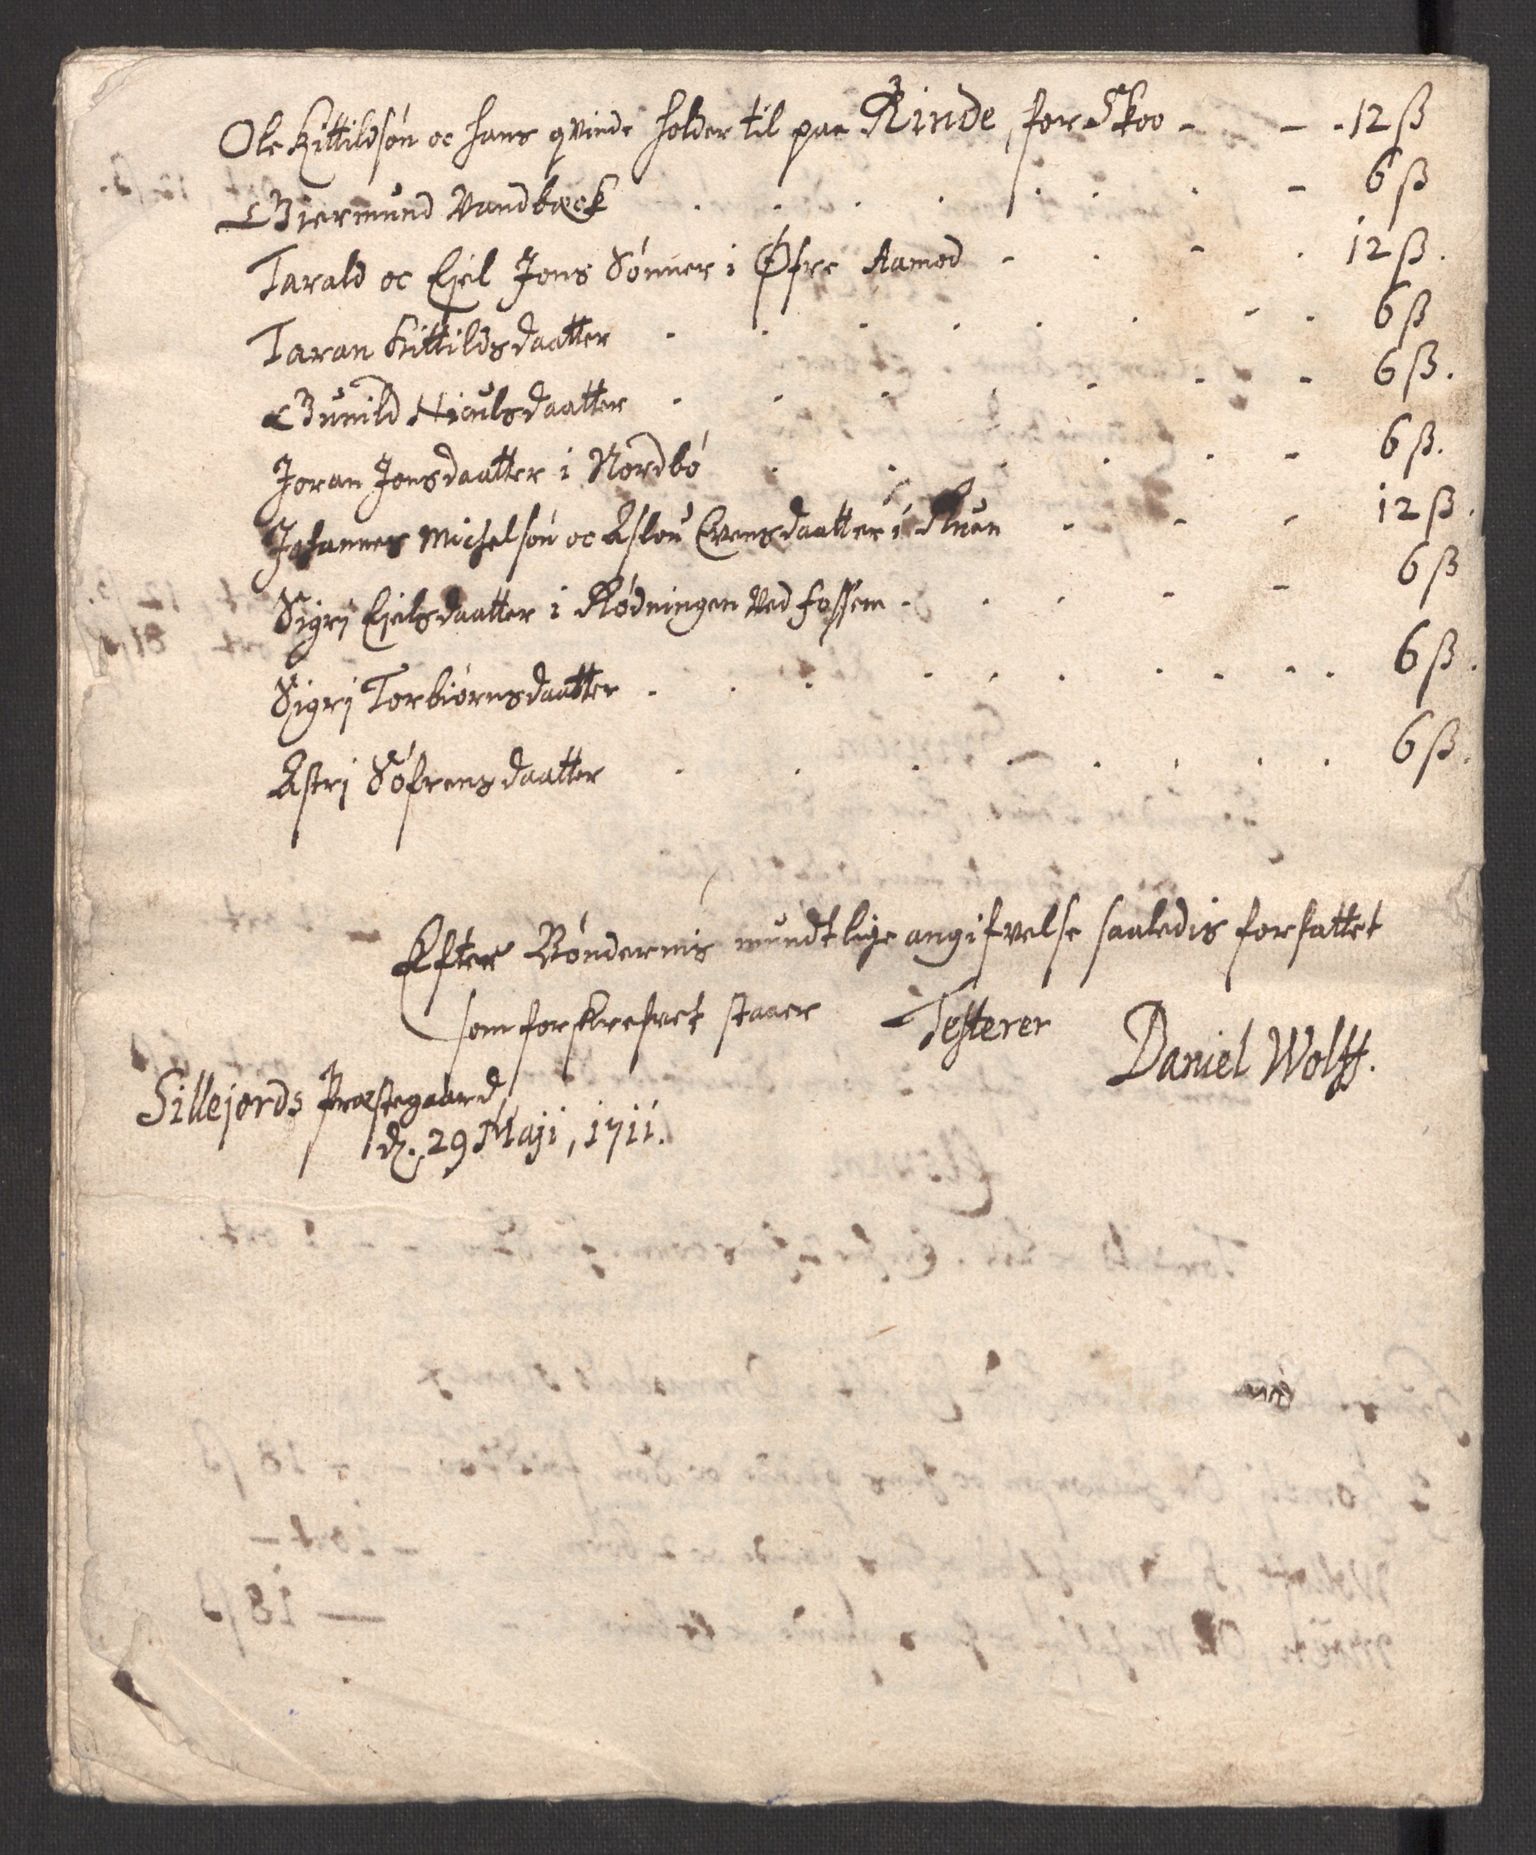 Ole Kittildsön oc hans qvinde holder til paa Rinde, for Skoo - - - 12 ß
Giermund Vandbæck . . . . . . . - 6 ß
Tarald oc Ejel Jons Sönner i Øfre Aamod - . - . 12 ß.
Taran Kittildsdaatter . . . . . . . - . 6 ß
Gunild Niculsdaatter . . . . . . - 6 ß.
Joran Jonsdaatter i Nordbö . . . . . - 6 ß.
Johannes Michelsön oc Aslou Evensdaatter i Kuen . - - 12 ß.
Sigrj Ejelsdaatter i Rödningen ved fossem - . . - - 6 ß
Sigrj Torbiörnsdaatter . . . . . . . - . . 6 ß.
Astrj Söfrensdaatter . . . . . . . 6 ß.
Efter Böndernis mundtlige angifvelse saaledis forfattet
som forskrefvet staaer Testerer
Daniel Wolff.
Sillejords Præstegaard,
d. 29 Maji, 1711.